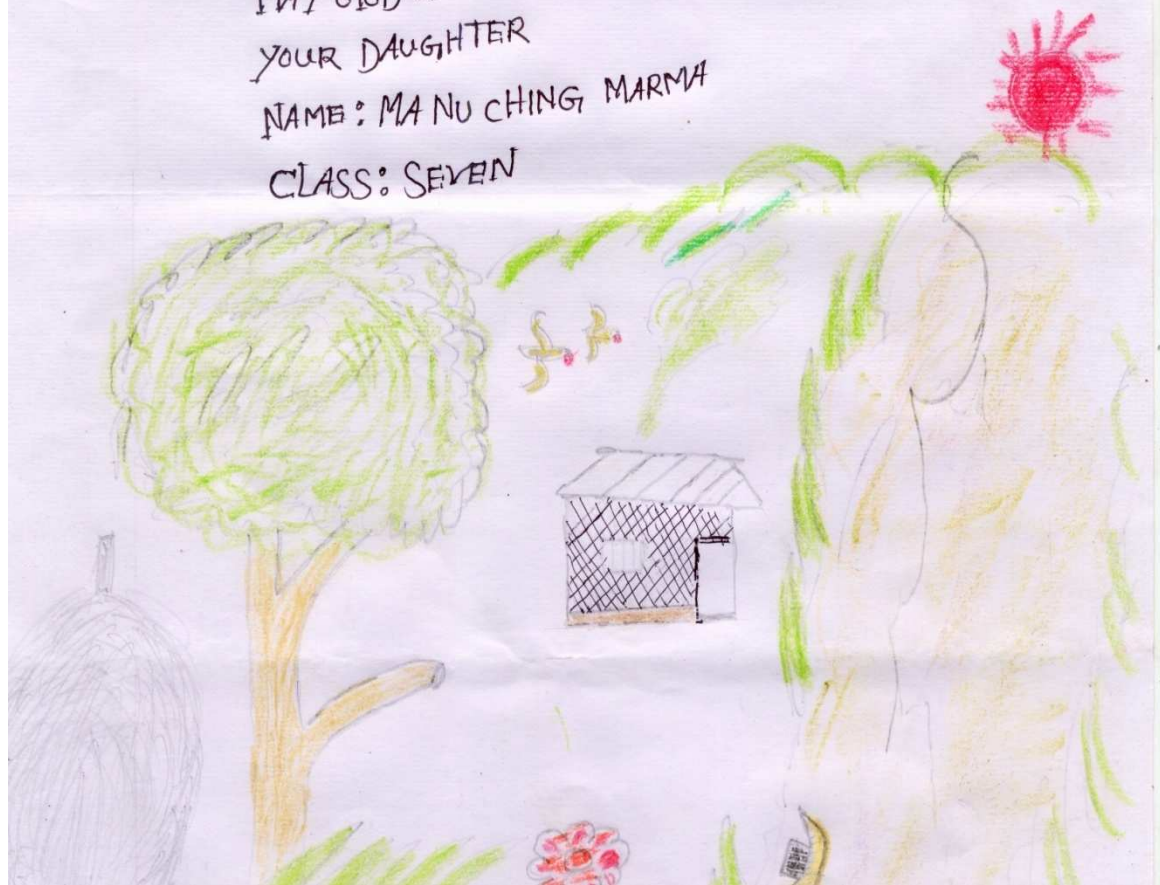 YOUR DAUGHTER
NAME: MA NU CHING MARMA
CLASS: SEVEN